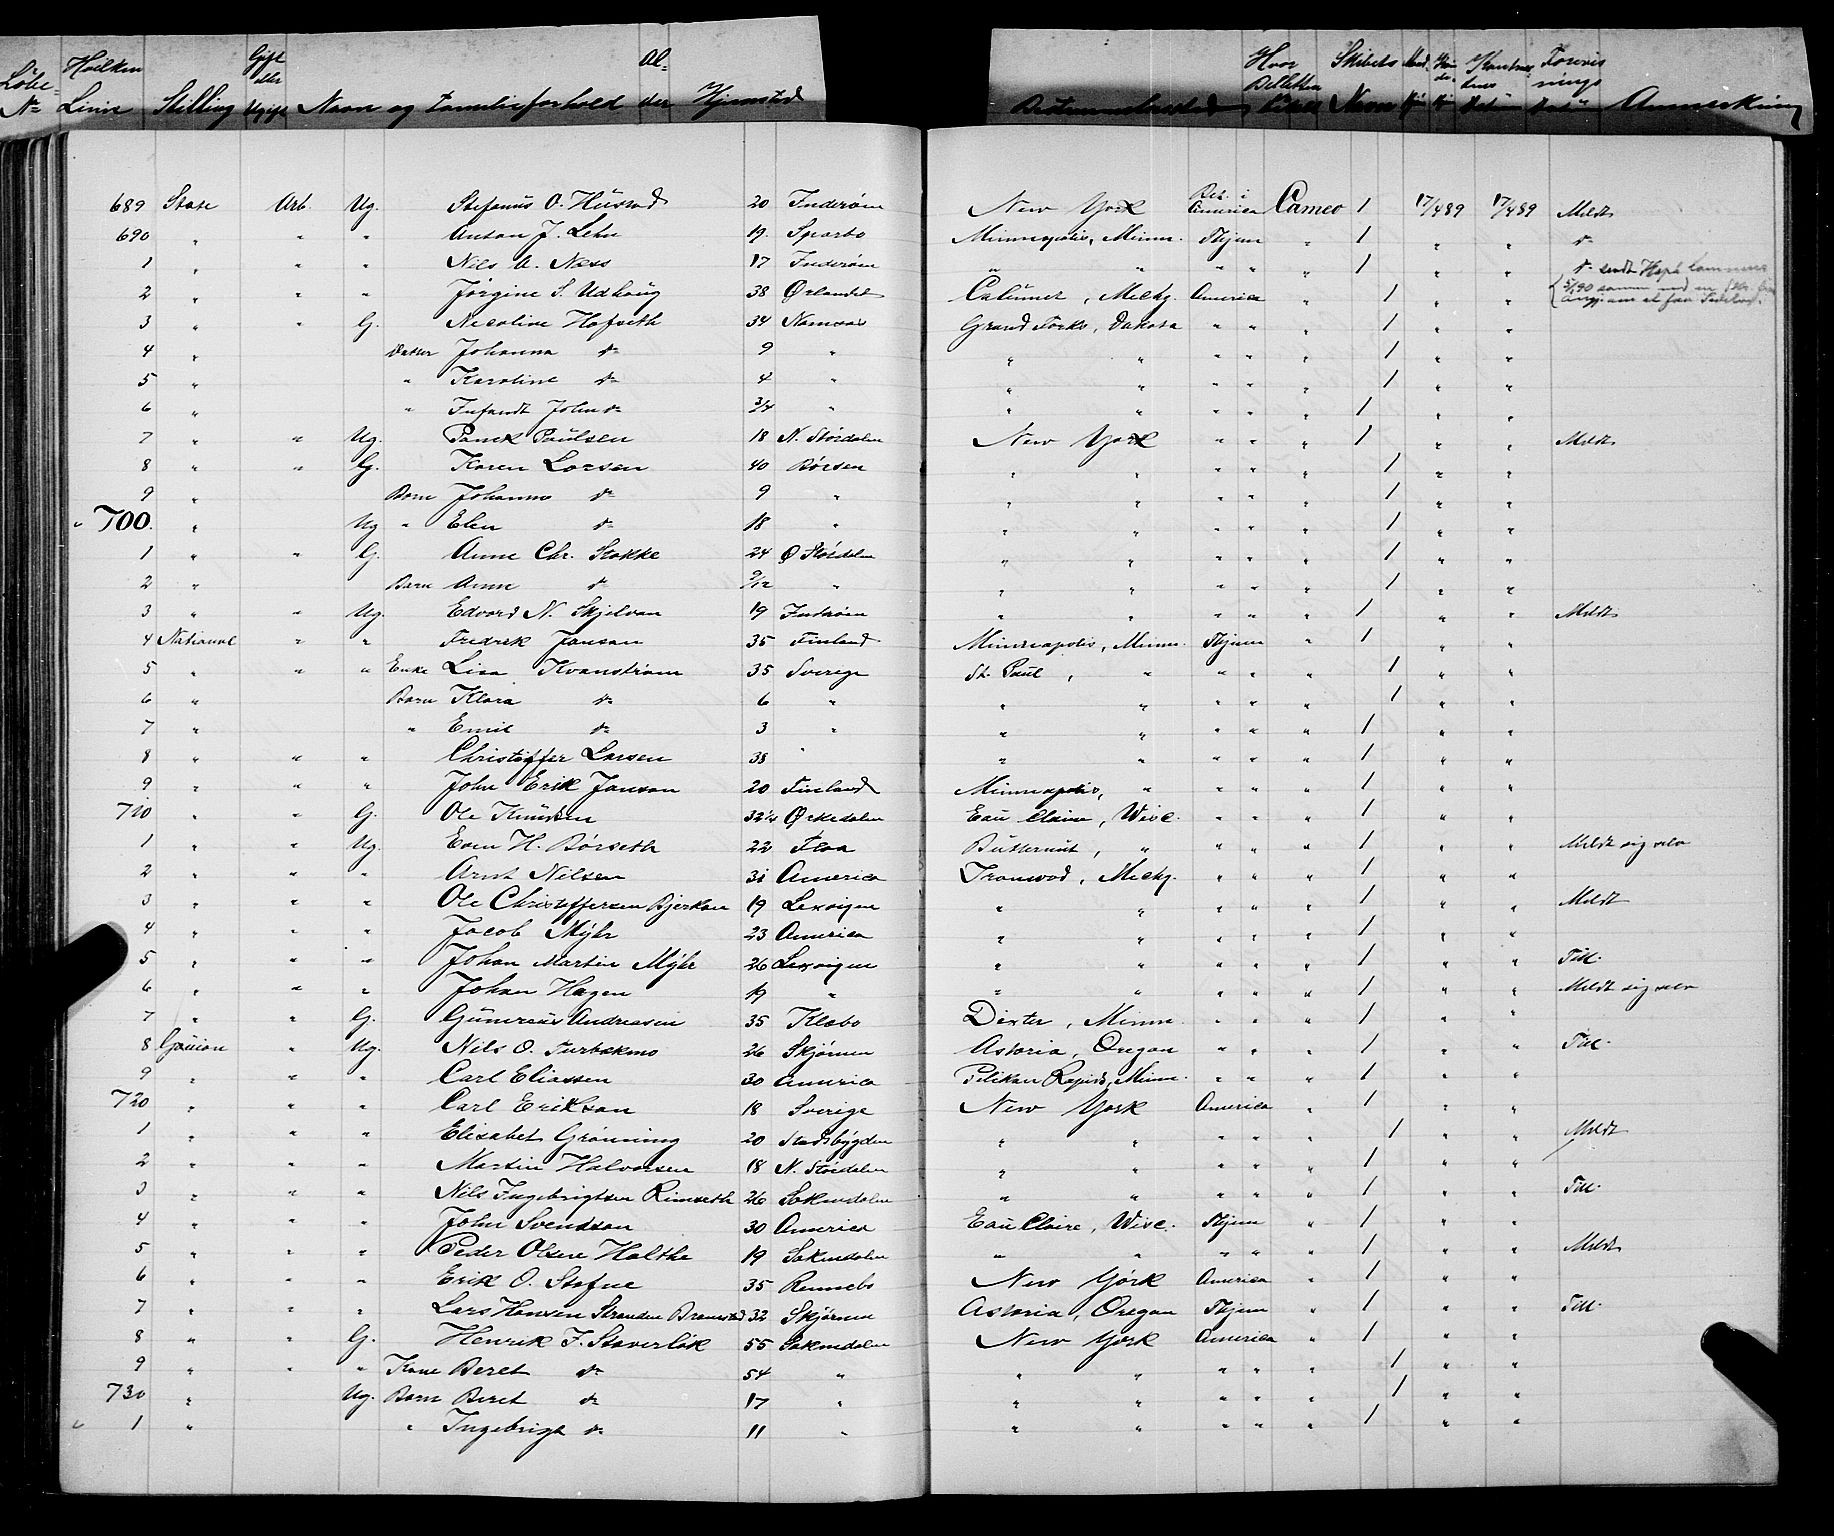 Løbe- Hvilken Gift Al- Hvor Skibets Mand- Kvin- Forevis
No Linie Stilling eller Ugift Navn og Familieforhold der Hjemsted Bestemmelsessted Billetten Navn Kjøn de- Anmerkning
689 State Arb. Ug. Stefanus O. Husvad 20 Inderøen New York Bet. i America Cameo 1 17/489 17/489 Meldt
690 " " " Anton J. Lehn 19 Sparbo Minneapolis, Minn. Hjem " 1 " " do
1 " " " Nils A. Næss 17 Inderøen " " " " " 1 " " do sendt
2 " " " Jørgine S. Udhaug 38 Ørlandet Calumet, Michg. America " 1 " "
3 " " G. Nicoline Hofseth 34 Namsos Grand Forks, Dakota " " " 1 " "
4 " Datter Johanna do 9 " " " " " " 1 " "
5 " " Karoline do 4 " " " " " " 1 " "
6 " " Infandt John do 3/4 " " " " " " 1 " "
7 " " Ug. Paul Paulsen 18 N. Stördalen New York " " " 1 " " Meldt
8 " " G. Karen Larsen 40 Börsen " " " " " 1 " "
9 " Barn Johannes do 9 " " " " " " 1 " "
700. " Ug " Elen do 18 " " " " " " 1 " "
1 " " G. Anne Chr. Stokke 24 Ø Stördalen " " " " " 1 " "
2 " Barn Anna do 9/12 " " " " " " 1 " "
3 " " Ug. Edvard N. Skjelvan 19 Inderøen " " " " " 1 " " Meldt
4 National " " Fredrik Janson 35 Finland Minneapolis, Minn. Hjem " 1 " "
5 " " " Enke Lisa Kvanström 35 Sverige St. Paul, " " " " 1 " "
6 " Barn Klara do 6 " " " " " " 1 " "
7 " " Emil do 3 " " " " " " 1 " "
8 " " " Christoffer Larsen 38 " " " " " " 1 " "
9 " " " John Erik Janson 20 Finland Minneapolis, " " " " 1 " "
710 " " G. Ole Knudsen 32 1/2 Ørkedalen Eau Claire, Wisc. " " " 1 " "
1 " " Ug. Even H. Börseth 22 Flaa Butternut, " " " " 1 " " Meldt sig selv
2 " " " Arnt Nilsen 31 America Ironwod, Michg. " " " 1 " "
3 " " " Ole Christoffersen Bjerkan 19 Lexvigen " " " " " 1 " " Meldt
4 " " " Jacob Myhr 23 America " " " " " 1 " "
5 " " " Johan Martin Myhr 26 Lexvigen " " " " " 1 " " Till.
6 " " " Johan Hagen 19 " " " " " " 1 " " Meldt sig selv
7 " " G. Gunerius Andreasen 35 Klæbo Dexter, Minn. " " " 1 " "
8 Guion " Ug. Nils O. Turbekmo 26 Skjørnen Astoria, Oregon " " " 1 " " Till.
9 " " " Carl Eliassen 30 America Pelikan Rapids, Minn. " " " 1 " "
720 " " " Carl Erikson 18 Sverige New York America " 1 " "
1 " " " Elisabet Grönning 20 Stadsbygden " " " " " 1 " " Meldt
2 " " " Martin Halvorsen 18 N. Stördalen " " " " " 1 " "
3 " " " Nils Ingebrigtsen Rimseth 26 Soknedalen " " " " " 1 " " Till.
4 " " " John Svendsen 30 America Eau Claire, Wisc. Hjem " 1 " "
5 " " " Peder Olsen Halthe 19 Soknedalen " " " " " 1 " " Meldt
6 " " " Erik O. Stefne 35 Rennebo New York America " 1 " "
7 " " " Lars Hansen Stranden Bramstad 32 Skjørnen Astoria, Oregon Hjem " 1 " " Till.
8 " " G. Henrik F. Staverløk 55 Soknedalen New York America " 1 " "
9 " " " Kone Beret do 54 " " " " " " 1 " "
730 " Ug. Barn Beret do 17 " " " " " " 1 " "
1 " " Ingebrigt do 11 " " " " " " 1 " "